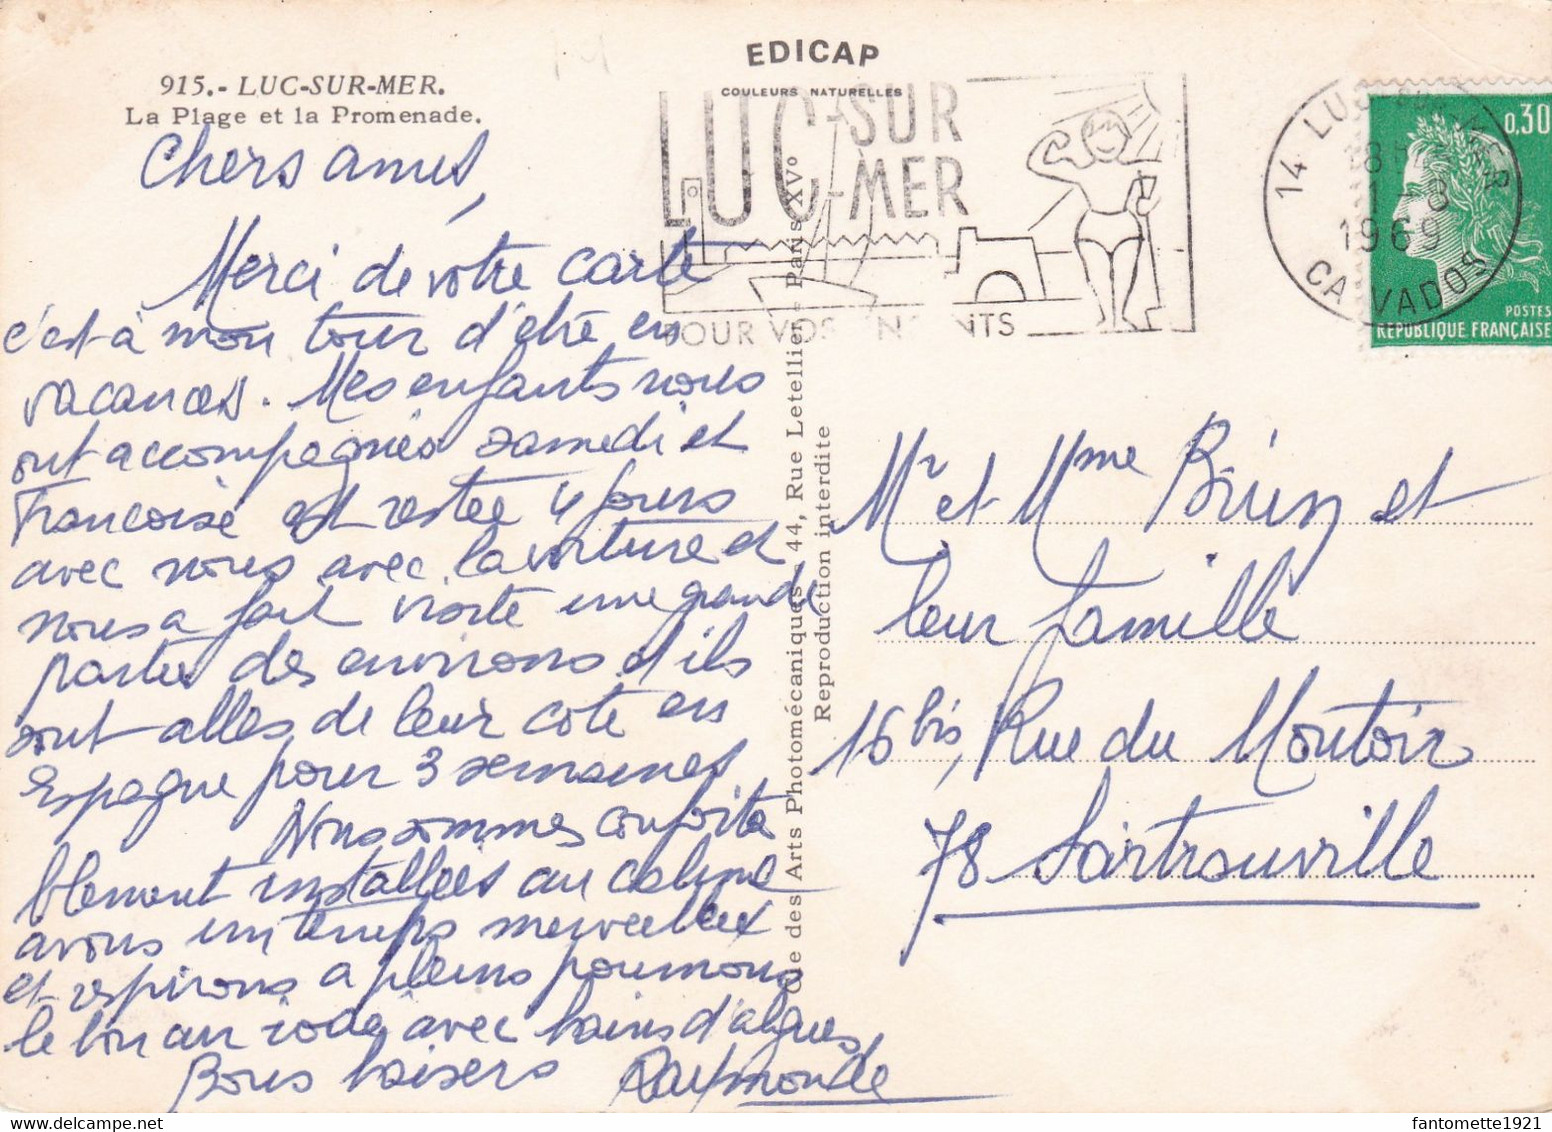 EDICAP
COULEURS NATURELLES
915.- LUC-SUR-MER.
La Plage et la Promenade.
LUC-SUR
-MER
POUR VOS ENFANTS
14 LUC-SUR-MER
18H
1-8
1969
CALVADOS
0,30
POSTES
REPUBLIQUE FRANÇAISE
Chers amis,
Merci de votre carte
c'est à mon tour d'être en
vacances. Mes enfants nous
ont accompagnés samedi et
Francoise est restée 4 jours
avec nous avec la voiture et
nous a fait visité une grande
partie des environs et ils
sont allés de leur cote en
Espagne pour 3 semaines
Nous sommes conforta
blement installées au calme
avons un temps merveilleux
et respirons a pleins poumons
le bon air iodé avec bains d'algues
Bons baisers Raymonde
Cie des Arts Photomécaniques - 44, Rue Letellier - Paris XVº
Reproduction interdite
Mr et Mme Brun et
leur famille
16 bis, Rue du Montoir
78 Sartrouville
fantomette1921